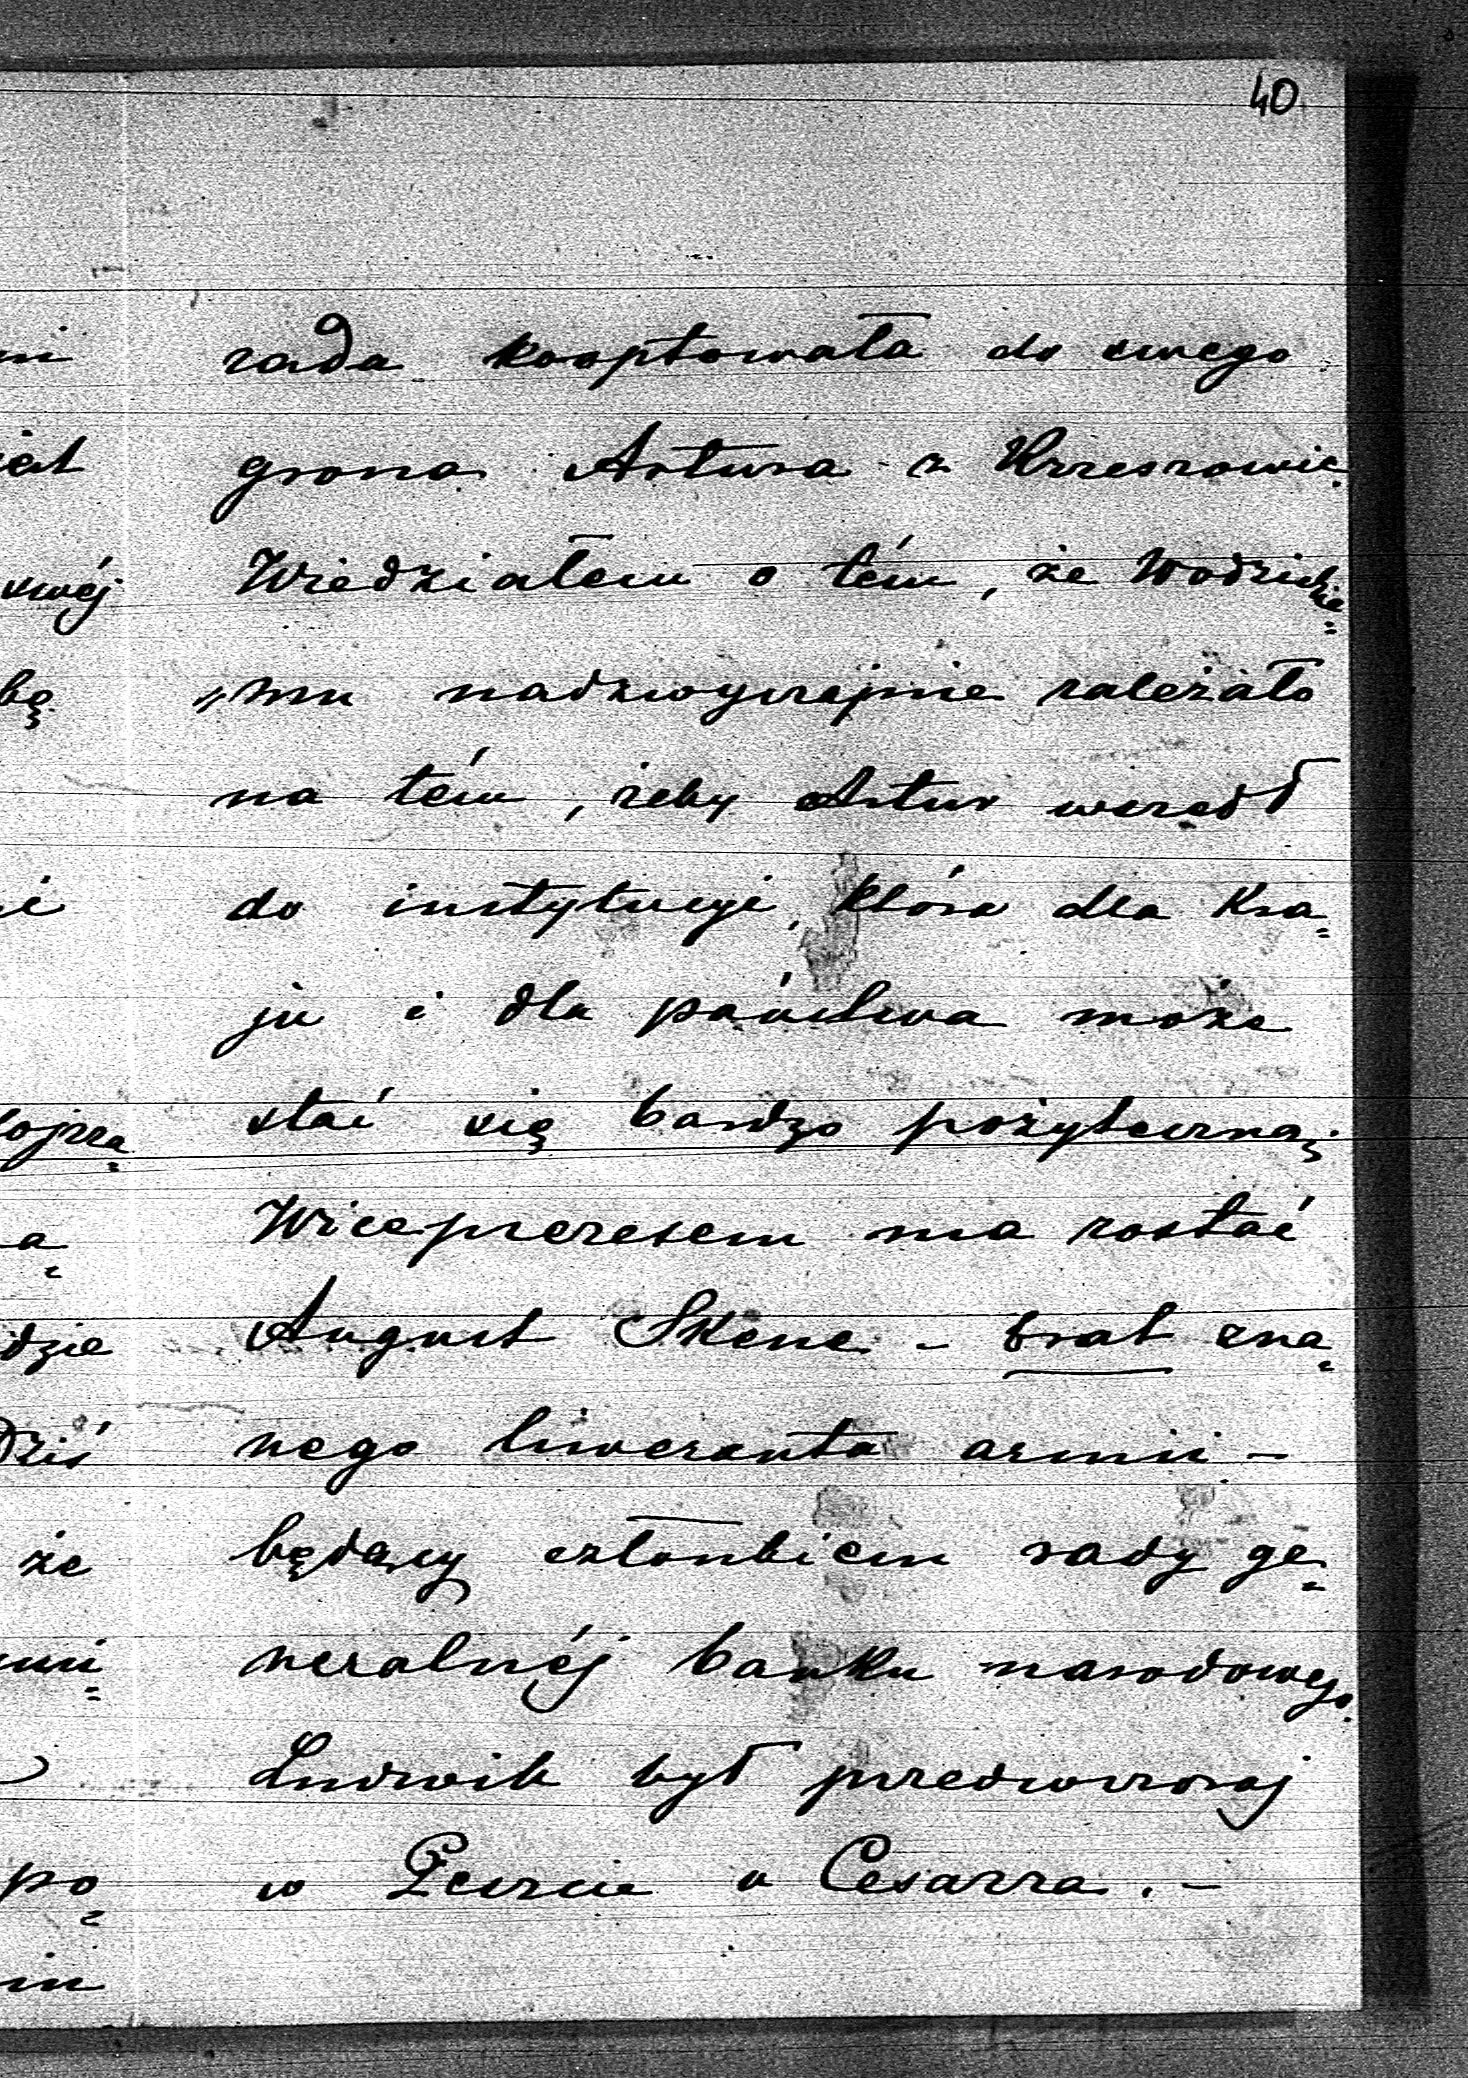 40
rada kooptowała do swego
grona Artura z Krzeszowic.
Wiedziałem o tém, że Wodzickie=
=mu nadzwyczajnie zależało
na tém, żeby Artur wszedł
do instytucyi, która dla kra=
ju i dla państwa może
stać się bardzo pożyteczną;
Wiceprezesem ma zostać
August Skene – brat zna=
nego liweranta armii –
będący członkiem rady ge=
neralnéj banku narodowego.
Ludwik był przedwczoraj
w Peszcie u Cesarza. –